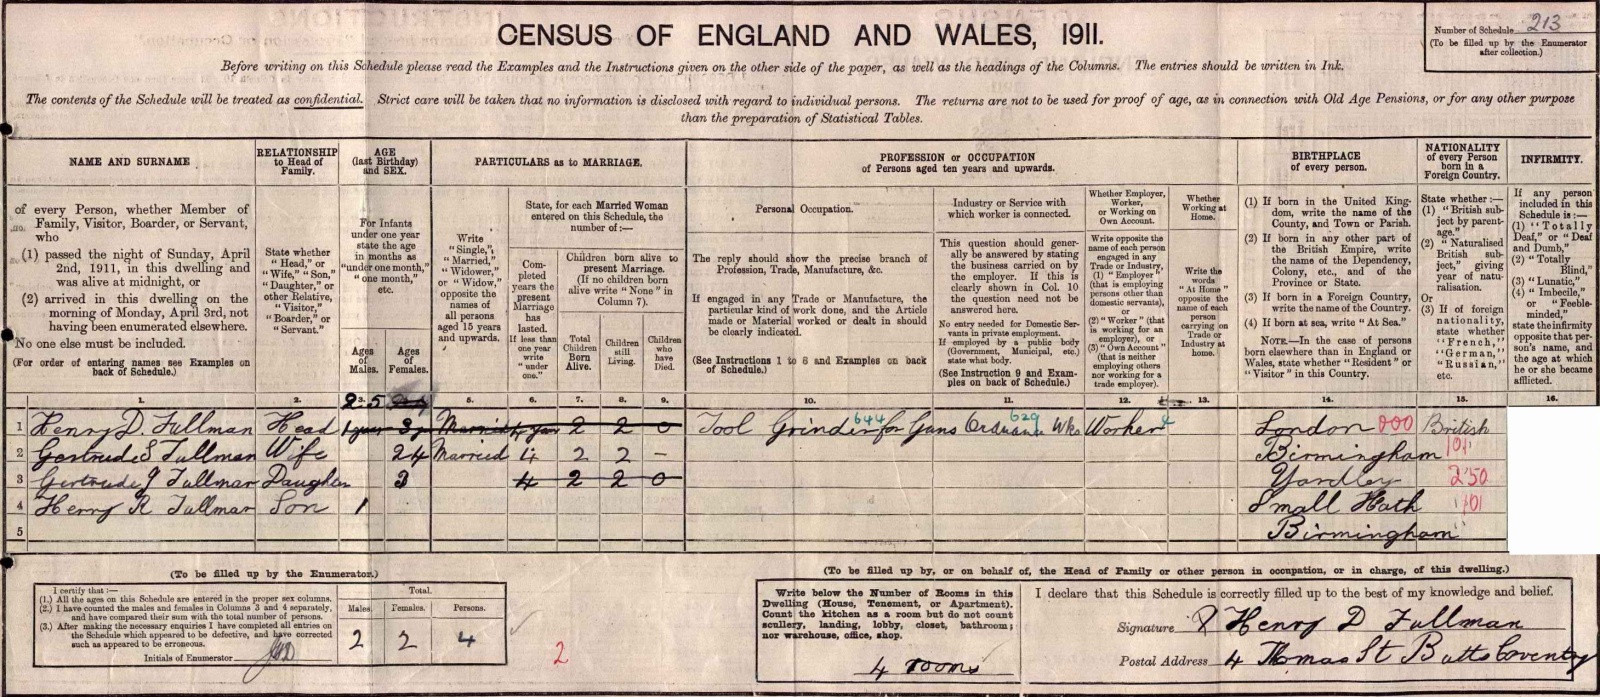 CENSUS OF ENGLAND AND WALES, 1911.
Number of Schedule 213
(To be filled up by the Enumerator
after collection.)
Before writing on this Schedule please read the Examples and the Instructions given on the other side of the paper, as well as the headings of the Columns. The entries should be written in Ink.
The contents of the Schedule will be treated as confidential. Strict care will be taken that no information is disclosed with regard to individual persons. The returns are not to be used for proof of age, as in connection with Old Age Pensions, or for any other purpose
than the preparation of Statistical Tables.
NAME AND SURNAME
of every Person, whether Member of
Family, Visitor, Boarder, or Servant,
who
(1) passed the night of Sunday, April
2nd, 1911, in this dwelling and
was alive at midnight, or
(2) arrived in this dwelling on the
morning of Monday, April 3rd, not
having been enumerated elsewhere.
No one else must be included.
(For order of entering names see Examples on
back of Schedule.)
RELATIONSHIP
to Head of
Family.
State whether
"Head," or
"Wife," "Son,"
"Daughter," or
other Relative,
"Visitor,"
"Boarder," or
"Servant."
AGE
(last Birthday)
and SEX.
For Infants
under one year
state the age
in months as
"under one month,"
"one month,"
etc.
Ages
of
Males.
Ages
of
Females.
PARTICULARS as to MARRIAGE.
Write
"Single,"
"Married,"
"Widower,"
or "Widow,"
opposite the
names of
all persons
aged 15 years
and upwards.
State, for each Married Woman
entered on this Schedule, the
number of:—
Completed
years the
present
Marriage
has
lasted.
If less than
one year
write
"under
one."
Children born alive to
present Marriage.
(If no children born
alive write "None" in
Column 7).
Total
Children
Born
Alive.
Children
still
Living.
Children
who
have
Died.
PROFESSION or OCCUPATION
of Persons aged ten years and upwards.
Personal Occupation.
The reply should show the precise branch of
Profession, Trade, Manufacture, &c.
If engaged in any Trade or Manufacture, the
particular kind of work done, and the Article
made or Material worked or dealt in should
be clearly indicated.
(See Instructions 1 to 8 and Examples on back
of Schedule.)
Industry or Service with
which worker is connected.
This question should gener-
ally be answered by stating
the business carried on by
the employer. If this is
clearly shown in Col. 10
the question need not be
answered here.
No entry needed for Domestic Ser-
vants in private employment.
If employed by a public body
(Government, Municipal, etc.)
state what body.
(See Instruction 9 and Exam-
ples on back of Schedule.)
Whether Employer,
Worker,
or Working on
Own Account.
Write opposite the
name of each person
engaged in any
Trade or Industry,
(1) "Employer"
(that is employing
persons other than
domestic servants),
or
(2) "Worker" (that
is working for an
employer), or
(3) "Own Account"
(that is neither
employing others
nor working for a
trade employer).
Whether
Working at
Home.
Write the
words
"At Home"
opposite the
name of each
person
carrying on
Trade or
Industry at
home.
BIRTHPLACE
of every person.
(1) If born in the United King-
dom, write the name of the
County, and Town or Parish.
(2) If born in any other part of
the British Empire, write
the name of the Dependency,
Colony, etc., and of the
Province or State.
(3) If born in a Foreign Country,
write the name of the Country.
(4) If born at sea, write "At Sea."
NOTE.—In the case of persons
born elsewhere than in England or
Wales, state whether "Resident" or
"Visitor" in this Country.
NATIONALITY
of every Person
born in a
Foreign Country.
State whether:—
(1) "British sub-
ject by parent-
age."
(2) "Naturalised
British sub-
ject," giving
year of natu-
ralisation.
Or
(3) If of foreign
nationality,
state whether
"French,"
"German,"
"Russian,"
etc.
INFIRMITY.
If any person
included in this
Schedule is:—
(1) "Totally
Deaf," or "Deaf
and Dumb,"
(2) "Totally
Blind,"
(3) "Lunatic,"
(4) "Imbecile,"
or "Feeble-
minded,"
state the infirmity
opposite that per-
son's name, and
the age at
which he or she
became
afflicted.
1. 2. 3. 5. 6. 7. 8. 9. 10. 11. 12. 13. 14. 15. 16.
25
1 Henry D. Fullman Head Married 2 2 0 Tool Grinder 644 for Guns Ordnance 629 Wks Worker London 000 British
2 Gertrude S Fullman Wife 24 Married 4 2 2 - Birmingham 101
3 Gertrude J Fullman Daughter 3 4 2 2 0 Yardley 250
4 Henry R Fullman Son 1 Small Heath 101
5 Birmingham
(To be filled up by the Enumerator.)
I certify that:—
(1.) All the ages on this Schedule are entered in the proper sex columns.
(2.) I have counted the males and females in Columns 3 and 4 separately,
and have compared their sum with the total number of persons.
(3.) After making the necessary enquiries I have completed all entries on
the Schedule which appeared to be defective, and have corrected
such as appeared to be erroneous.
Initials of Enumerator
Total.
Males. Females. Persons.
2 2 4
2
(To be filled up by, or on behalf of, the Head of Family or other person in occupation, or in charge, of this dwelling.)
Write below the Number of Rooms in this
Dwelling (House, Tenement, or Apartment).
Count the kitchen as a room but do not count
scullery, landing, lobby, closet, bathroom;
nor warehouse, office, shop.
4 rooms
I declare that this Schedule is correctly filled up to the best of my knowledge and belief.
Signature Henry D Fullman
Postal Address 4 Thomas St Butts Coventry